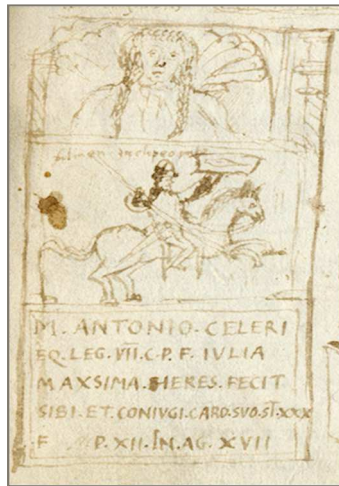 M. ANTONIO. CELERI
EQ. LEG. VII. C. P. F. IVLIA
MAXSIMA. HERES. FECIT
SIBI. ET. CONIVGI. CARO. SVO. ST. XXX
F P. XII. IN. AG. XVII